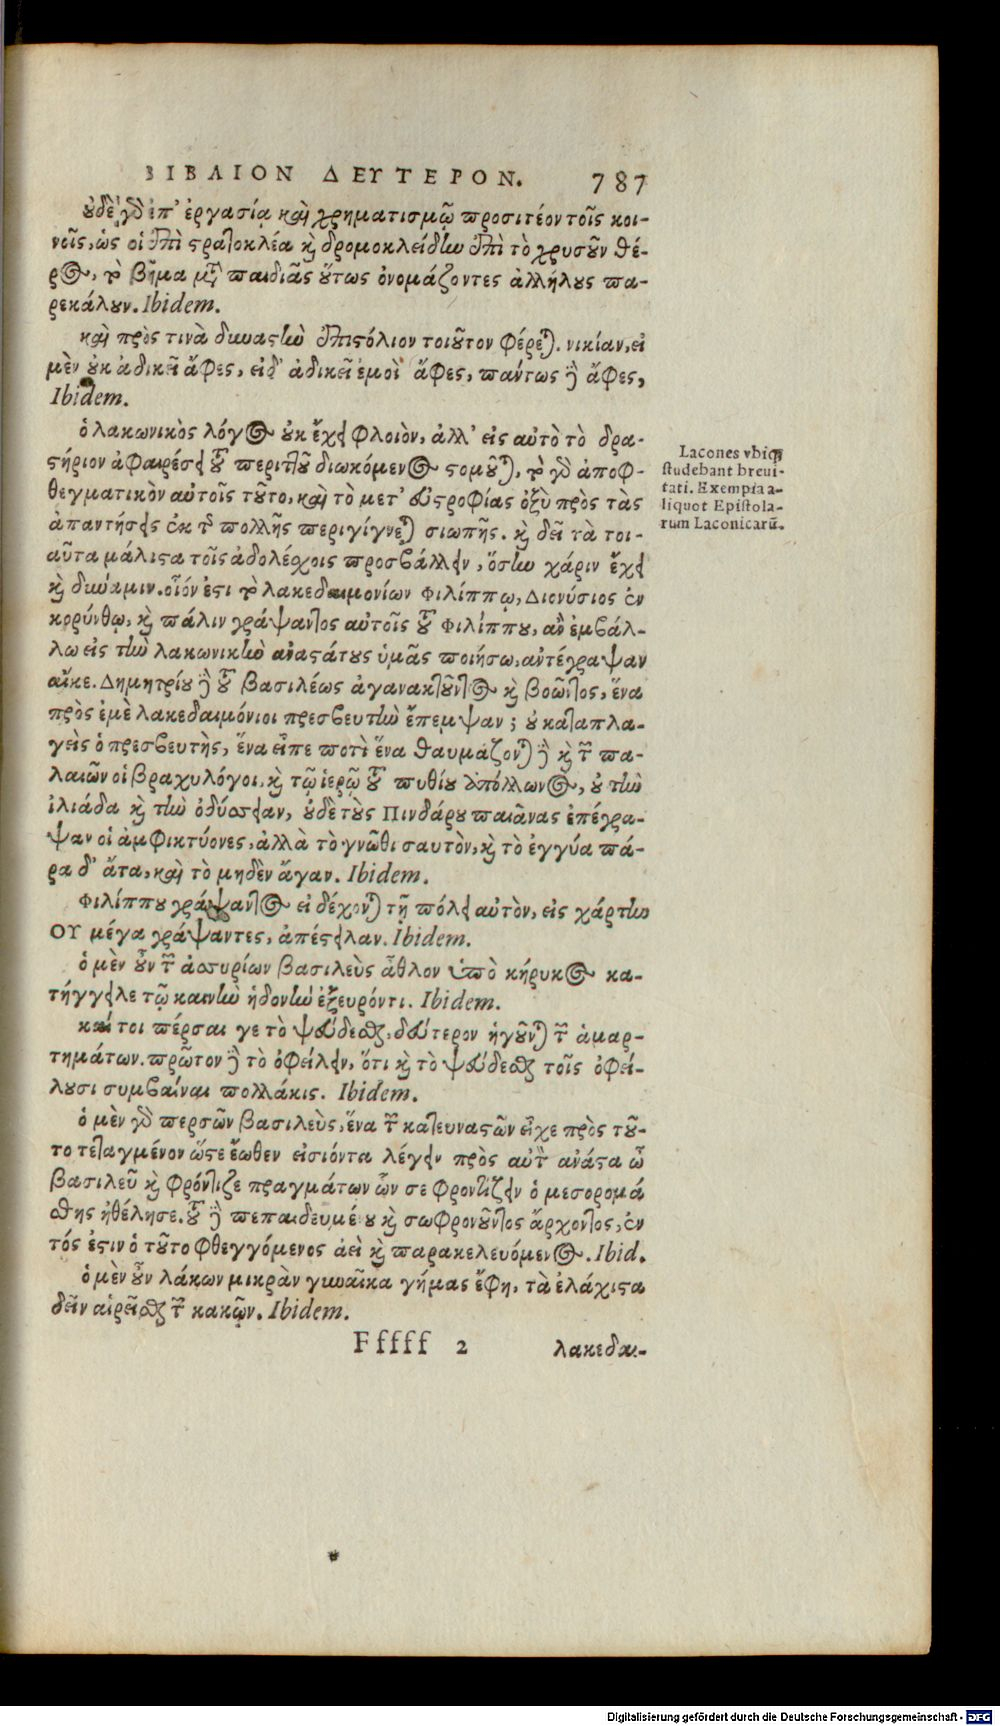 ΒΙΒΛΙΟΝ ΔΕΥΤΕΡΟΝ. 787
οὐδὲ γὰρ ἐπ’ ἐργασίᾳ καὶ χρηματισμῷ προσιτέον τοῖς κοι-
νοῖς, ὡς οἱ ἐπὶ στρατοκλέα καὶ δρομοκλείδην ἐπὶ τὸ χρυσοῦν θέ-
ρος, τὸ βῆμα μετὰ παιδιᾶς οὕτως ὀνομάζοντες ἀλλήλους πα-
ρεκάλουν. Ibidem.
καὶ πρὸς τινὰ δυναστὴν ἐπιστόλιον τοιοῦτον φέρεται. νικίαν, εἰ
μὲν οὐκ ἀδικεῖ ἄφες, εἰ δ’ ἀδικεῖ ἐμοὶ ἄφες, πάντως δὲ ἄφες,
Ibidem.
ὁ λακωνικὸς λόγος οὐκ ἔχει φλοιὸν, ἀλλ’ εἰς αὐτὸ τὸ δρα-
στήριον ἀφαιρέσει τοῦ περιττοῦ διωκόμενος στομοῦται, τὸ γὰρ ἀποφ-
θεγματικὸν αὐτοῖς τοῦτο, καὶ τὸ μετ’ εὐστροφίας ὀξὺ πρὸς τὰς
ἀπαντήσεις ἐκ τῆς πολλῆς περιγίγνεται σιωπῆς. καὶ δεῖ τὰ τοι-
αῦτα μάλιστα τοῖς ἀδολέσχοις προσβάλλειν, ὅσην χάριν ἔχει
καὶ δύναμιν. οἷόν ἐστι τὸ λακεδαιμονίων Φιλίππῳ, Διονύσιος ἐν
κορύνθῳ, καὶ πάλιν γράψαντος αὐτοῖς τοῦ Φιλίππου, ἂν ἐμβάλ-
λω εἰς τὴν λακωνικὴν ἀναστάτους ὑμᾶς ποιήσω, ἀντέγραψαν
αἴκε. Δημητρίου δὲ τοῦ βασιλέως ἀγανακτοῦντος καὶ βοῶντος, ἕνα
πρὸς ἐμὲ λακεδαιμόνιοι πρεσβευτὴν ἔπεμψαν; οὐ καταπλα-
γεὶς ὁ πρεσβευτὴς, ἕνα εἶπε ποτὶ ἕνα θαυμάζονται δὲ καὶ τῶν πα-
λαιῶν οἱ βραχυλόγοι, καὶ τῷ ἱερῷ τοῦ πυθίου ἀπόλλωνος, οὐ τὴν
ἰλιάδα καὶ τὴν ὀδύσσειαν, οὐδὲ τοὺς Πινδάρου παιᾶνας ἐπέγρα-
ψαν οἱ ἀμφικτύονες, ἀλλὰ τὸ γνῶθι σαυτὸν, καὶ τὸ ἐγγύα πά-
ρα δ’ ἄτα, καὶ τὸ μηδὲν ἄγαν. Ibidem.
Φιλίππου γράψαντος εἰ δέχονται τῇ πόλει αὐτὸν, εἰς χάρτην
ΟΥ μέγα γράψαντες, ἀπέστειλαν. Ibidem.
ὁ μὲν οὖν τῶν ἀσσυρίων βασιλεὺς ἆθλον ὑπὸ κήρυκος κα-
τήγγειλε τῷ καινὴν ἡδονὴν ἐξευρόντι. Ibidem.
καί τοι πέρσαι γε τὸ ψεύδεσθαι, δεύτερον ἡγοῦνται τῶν ἁμαρ-
τημάτων. πρῶτον δὲ τὸ ὀφείλειν, ὅτι καὶ τὸ ψεύδεσθαι τοῖς ὀφεί-
λουσι συμβαίνει πολλάκις. Ibidem.
ὁ μὲν γὰρ περσῶν βασιλεὺς, ἕνα τῶν κατευναστῶν εἶχε πρὸς τοῦ-
το τεταγμένον ὥστε ἕωθεν εἰσιόντα λέγειν πρὸς αὐτὸν ἀνάστα ὦ
βασιλεῦ καὶ φρόντιζε πραγμάτων ὧν σε φροντίζειν ὁ μεσορομά
σδης ἠθέλησε. τοῦ δὲ πεπαιδευμένου καὶ σωφρονοῦντος ἄρχοντος, ἐν
τός ἐστιν ὁ τοῦτο φθεγγόμενος ἀεὶ καὶ παρακελευόμενος. Ibid.
ὁ μὲν οὖν λάκων μικρὰν γυναῖκα γήμας ἔφη, τὰ ἐλάχιστα
δεῖν αἱρεῖσθαι τῶν κακῶν. Ibidem.
Fffff 2 λακεδαι-
Lacones vbiq;
studebant breui-
tati. Exempla a-
liquot Epistola-
rum Laconicarũ.
Digitalisierung gefördert durch die Deutsche Forschungsgemeinschaft - DFG